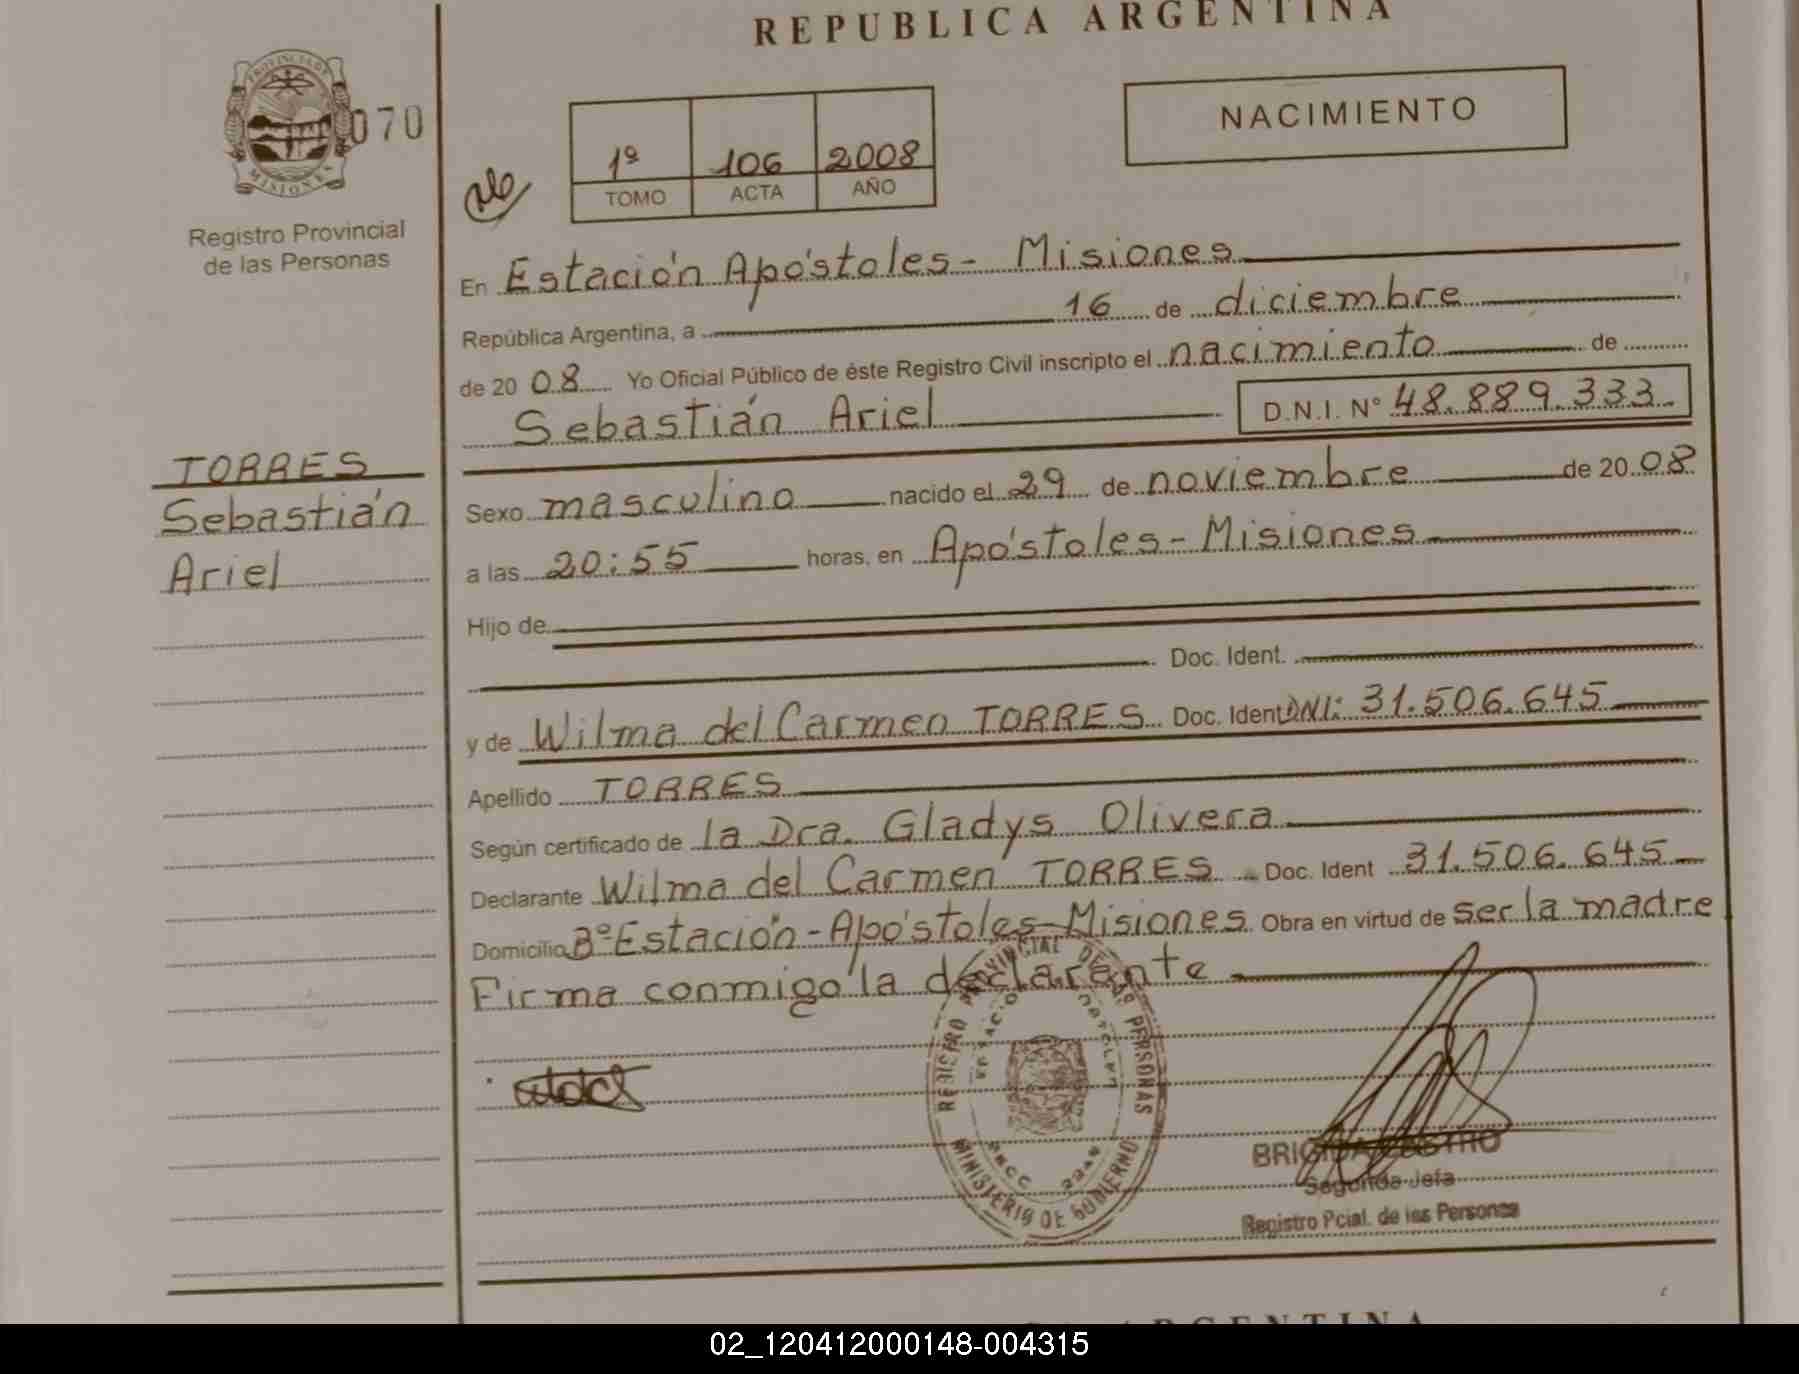 REPUBLICA ARGENTINA
PROVINCIA DE
MISIONES
070
Registro Provincial
de las Personas
1º 106 2008
TOMO ACTA AÑO
NACIMIENTO
En Estación Apóstoles - Misiones
República Argentina, a 16 de diciembre
de 20 08 Yo Oficial Público de éste Registro Civil inscripto el nacimiento de
Sebastián Ariel D.N.I. N° 48.889.333.
TORRES
Sebastián
Ariel
Sexo masculino nacido el 29 de noviembre de 20 08
a las 20:55 horas, en Apóstoles - Misiones
Hijo de
Doc. Ident.
y de Wilma del Carmen TORRES Doc. Ident DNI: 31.506.645
Apellido TORRES
Según certificado de la Dra. Gladys Olivera
Declarante Wilma del Carmen TORRES Doc. Ident 31.506.645
Domicilio Bº Estación - Apóstoles - Misiones Obra en virtud de ser la madre
Firma conmigo la declarante
REGISTRO PROVINCIAL DE LAS PERSONAS
MINISTERIO DE GOBIERNO
BRIGIDA CASTRO
Segunda Jefa
Registro Pcial. de las Personas
ARGENTINA
02_120412000148-004315